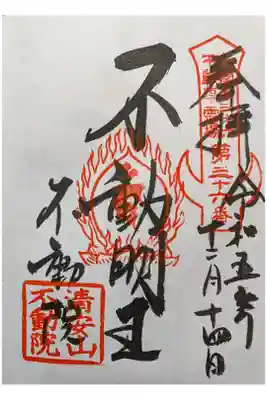 奉拝
第三十六番
令和五年
十二月十四日
不動明王
不動院
清安山
不動院